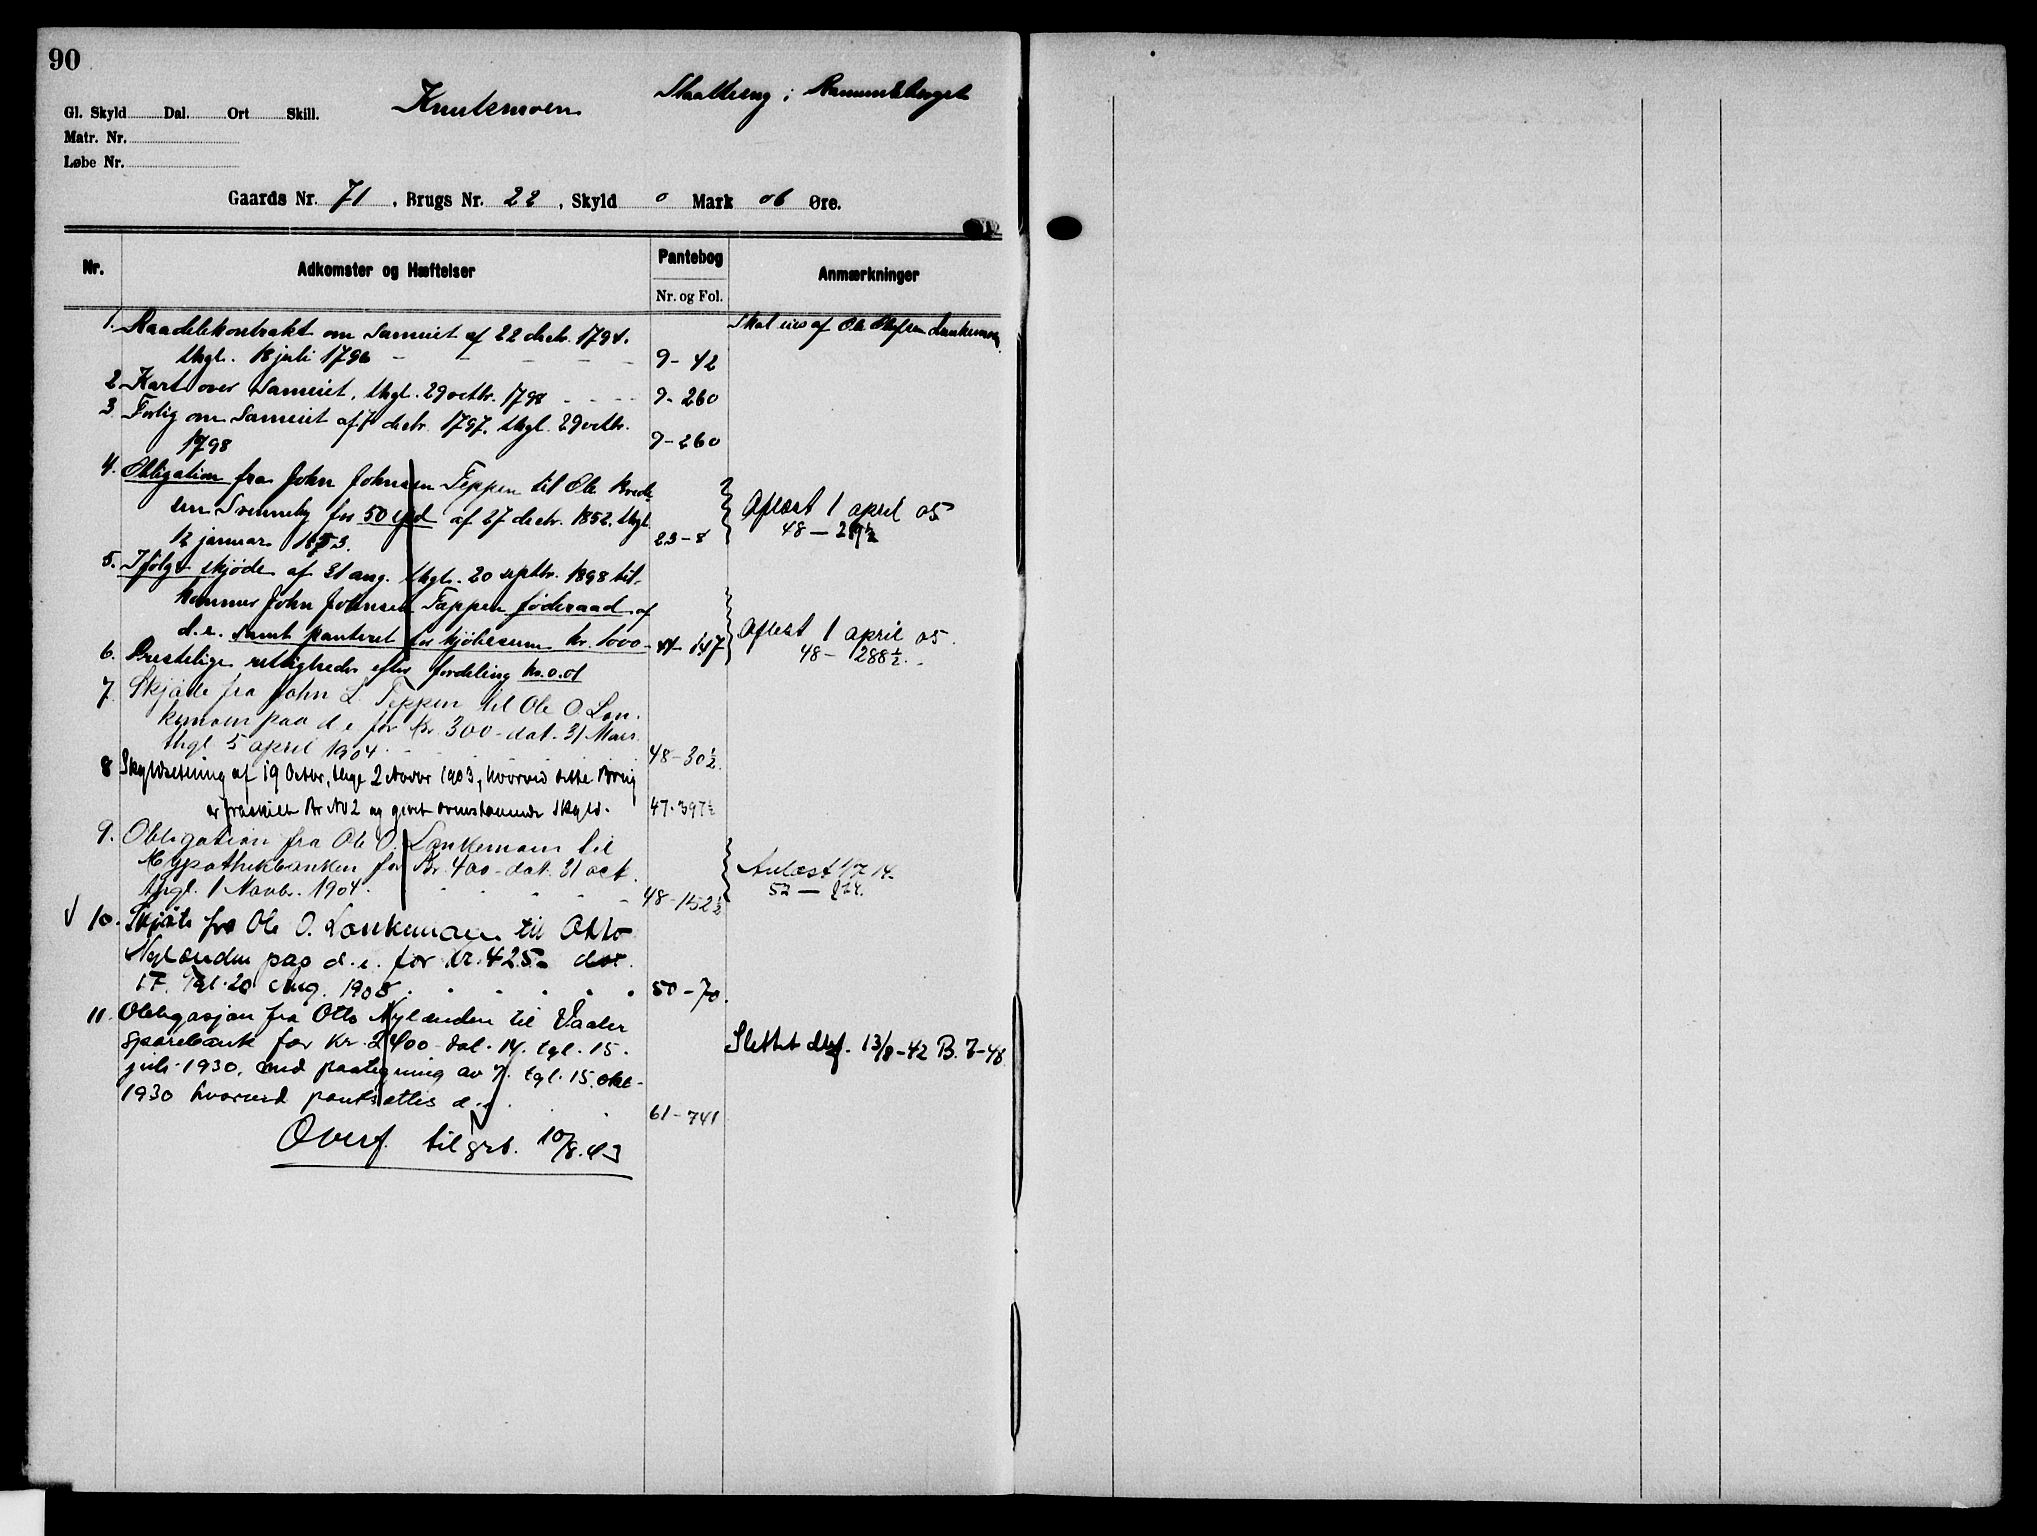 90
Knutsmoen
Skattreng i
Gl. Skyld Dal. Ort Skill.
Matr. Nr.
Løbe Nr.
Gaards Nr. 71, Brugs Nr. 22, Skyld 0 Mark 06 Øre.
Nr. Adkomster og Hæftelser Pantebog Anmærkninger
Nr. og Fol.
1. Raadelekontrakt om Sameiet af 22 decbr. 1794. Skal eies af Ole Olafsen
thgl. 18 juli 1796 9-42
2. Kart over Sameiet, thgl. 29 octbr. 1798 9-260
3. Forlig om Sameiet af 7 decbr. 1797. thgl. 29 octbr.
1798 9-260
4. Obligation fra John Johnsen Teppen til Ole
sen for 50 spd af 27 decbr. 1852. thgl. Aflæst 1 april 05
12 januar 1853. 23-8 48-
5. Ifølge skjøde af 31 aug. thgl. 20 septbr. 1898 til-
kommer John Johnsen Teppen føderaad af
d.e. samt panteret for kjøbesum kr. 1000- 147 Aflæst 1 april 05.
6. Prestelige rettigheder efter fordeling kr. 0.01 48-288½.
7. Skjøde fra John L. Teppen til Ole O. Lan-
kemoen paa d e for Kr. 300- dat. 31 Mars
thgl. 5 april 1904 48-30½.
8 Skyldsetning af 19 Octbr, thgl 2 Novbr 1903, hvorved dette Brug
er fraskilt Br No 2 og givet ovenstaaende Skyld. 47-397½
9. Obligation fra Ole O. Lankemoen til
Hypothekbanken for Kr. 400- dat. 31 oct. Avlæst
thgl. 1 Novb. 1904. 48-152½ 52-
10. Skjøte fra Ole O. Lankemoen til Otto
Nylænden paa d.e. for Kr. 425- dat.
17. Tgl. 20 Aug. 1908 50-70.
11. Obligasjon fra Otto Nylænden til Vaaler
sparebank for Kr. 2400- dat. 14. tgl. 15. Slettet 13/8-42 B. 7-48
juli 1930, med paategning av 7. tgl. 15. okt-
1930 hvorved pantsættes d.e. 61-741
Overf. til grb. 10/8.43